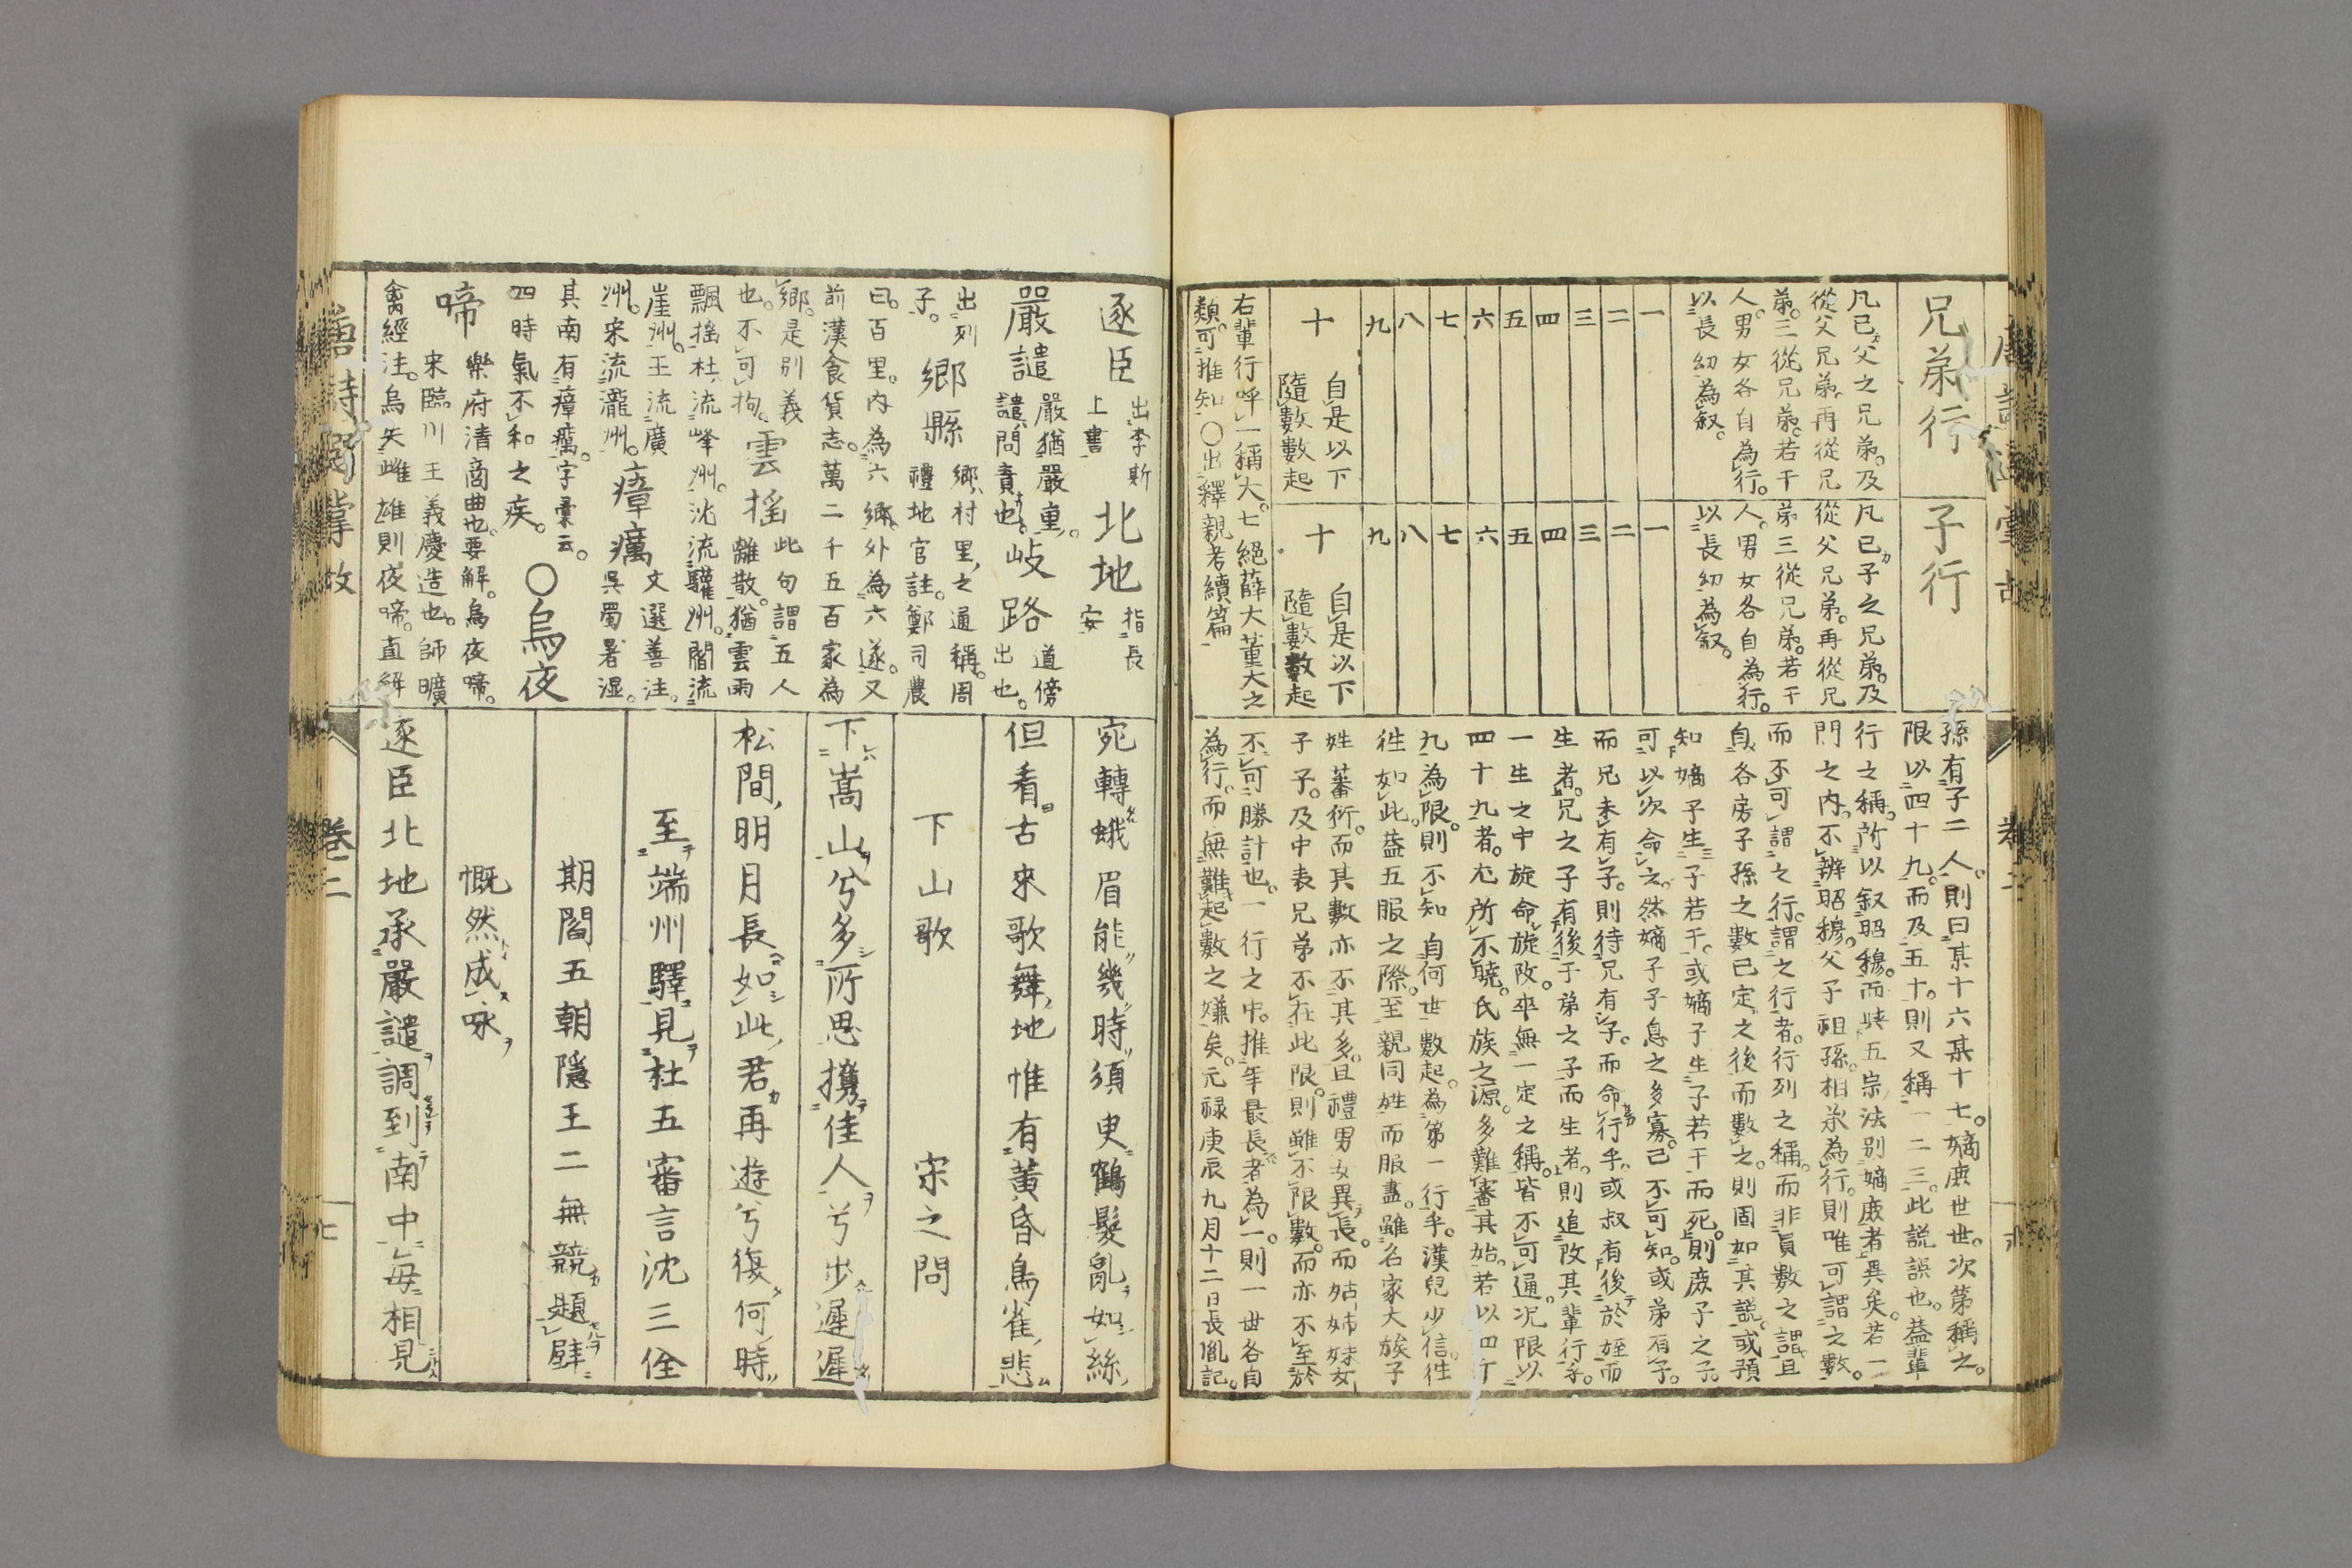 兄弟行
凡己父之兄弟。及
從父兄弟。再從兄
弟。三從兄弟。若干
人。男女各自為行。
以長幼為叙。
一
二
三
四
五
六
七
八
九
十
自是以下
隨數數起
子行
凡己子之兄弟。及
從父兄弟。再從兄
弟三從兄弟。若干
人。男女各自為行。
以長幼為叙。
一
二
三
四
五
六
七
八
九
十
自是以下
隨數數起
右輩行呼一稱大。七絕薛大董大之
類。可推知〇出釋親考續篇
孫有子二人。則曰某十六某十七。嫡庶世世。次第稱之。
限以四十九。而及五十。則又稱一二三。此說誤也。蓋輩
行之稱。所以叙昭穆。而与五宗法別嫡庶者異矣。若一
門之内。不辨昭穆。父子祖孫。相承為行。則唯可謂之數。
而不可謂之行。謂之行者。行列之稱。而非員數之謂。且
自各房子孫之數已定之後而數之。則固如其說。或預
知嫡子生子若干。或嫡子生子若干而死。則庶子之子。
可以次命之。然嫡子子息之多寡。已不可知。或弟有子。
而兄未有子。則待兄有子。而命行乎。或叔有後於姪而
生者。兄之子有後于弟之子而生者。則追改其輩行乎。
一生之中旋命旋改。卒無一定之稱。皆不可通。况限以
四十九者。尤所不曉。氏族之源。多難審其始。若以四十
九為限。則不知自何世數起。為第一行乎。漢兒少信。往
往如此。蓋五服之際。至親同姓而服盡。雖名家大族子
姓蕃衍。而其數亦不其多。且禮男女異長。而姑姉妹女
子子。及中表兄弟不在此限。則雖不限數。而亦不至於
不可勝計也。一行之中。推年最長者為一。則一世各自
為行。而無難起數之嫌矣。元禄庚辰九月十二日長胤記。
逐臣 出李斯
上書 北地 指長
安
嚴譴 嚴猶嚴重。
譴問責也。 岐路 道傍
出也。
出列
子。 鄉縣 鄉村里之通稱。周
禮地官註。鄭司農
曰。百里。内為六鄉。外為六遂。又
前漢食貨志。萬二千五百家為
鄉。是別義
也。不可拘。 雲搖 此句謂五人
離散。猶雲雨
飄搖杜流峰州。沈流驩州。閻流
崖州。王流廣
州。宋流瀧州。 瘴癘 文選善注。
吳蜀暑湿。
其南有瘴癘。字彙云。
四時氣不和之疾。 〇烏夜
啼 樂府清商曲也。要解。烏夜啼。
宋臨川王義慶造也。師曠
禽經注。烏失雌雄則夜啼。直解
宛轉蛾眉能幾時須臾鶴髮亂如絲
但看古來歌舞地惟有黃昏鳥雀悲
下山歌　宋之問
下嵩山兮多所思攜佳人兮步遲遲
松間明月長如此君再遊兮復何時
至端州驛見杜五審言沈三佺
期閻五朝隱王二無競題壁
慨然成咏
逐臣北地承嚴譴調到南中每相見
卷二
七